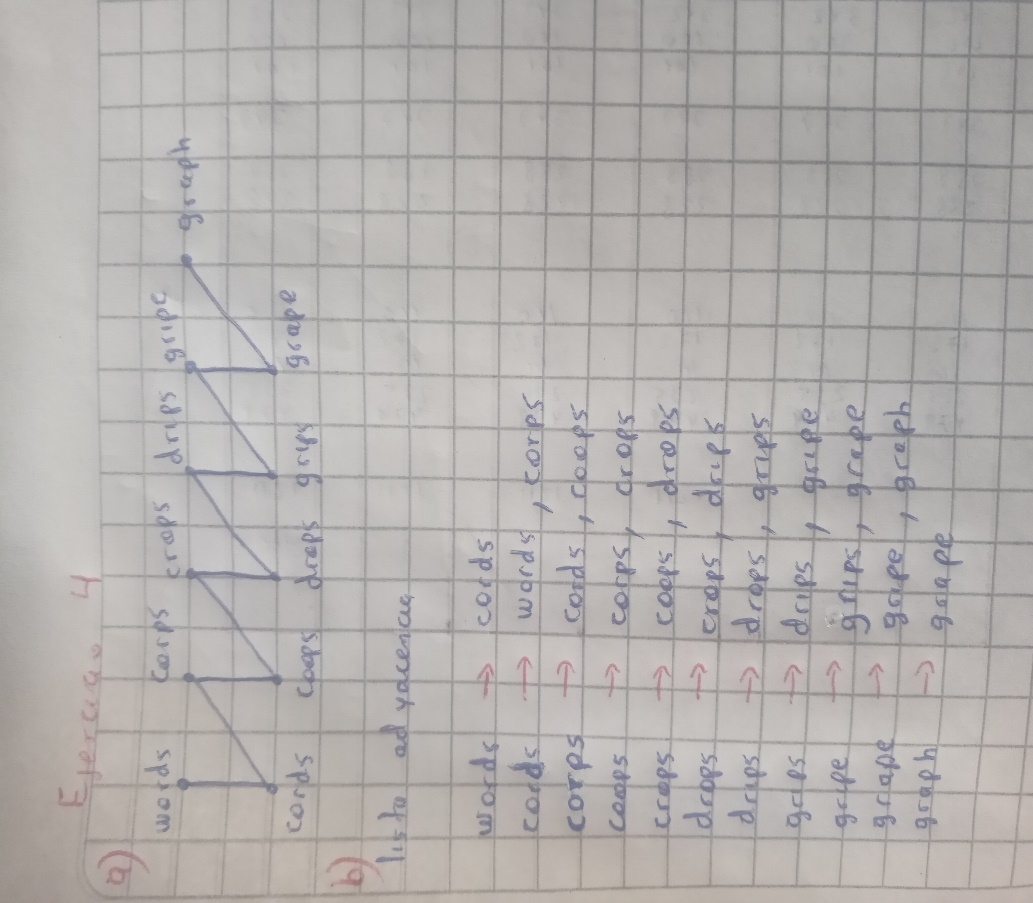 Ejercicio 4
a)
words corps crops drips gripe graph
cords coops drops grips grape
b)
lista adyacencia
words → cords
cords → words, corps
corps → cords, coops
coops → corps, crops
crops → coops, drops
drops → crops, drips
drips → drops, grips
grips → drips, gripe
gripe → grips, grape
grape → gripe, graph
graph → grape